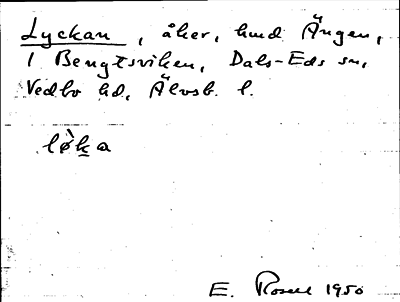 Lyckan, åker, hmd Ängen,
1 Bengtsviken, Dals-Eds sn,
Vedbo hd, Älvsb. l.
lø̀ka
E. Rosell 1950